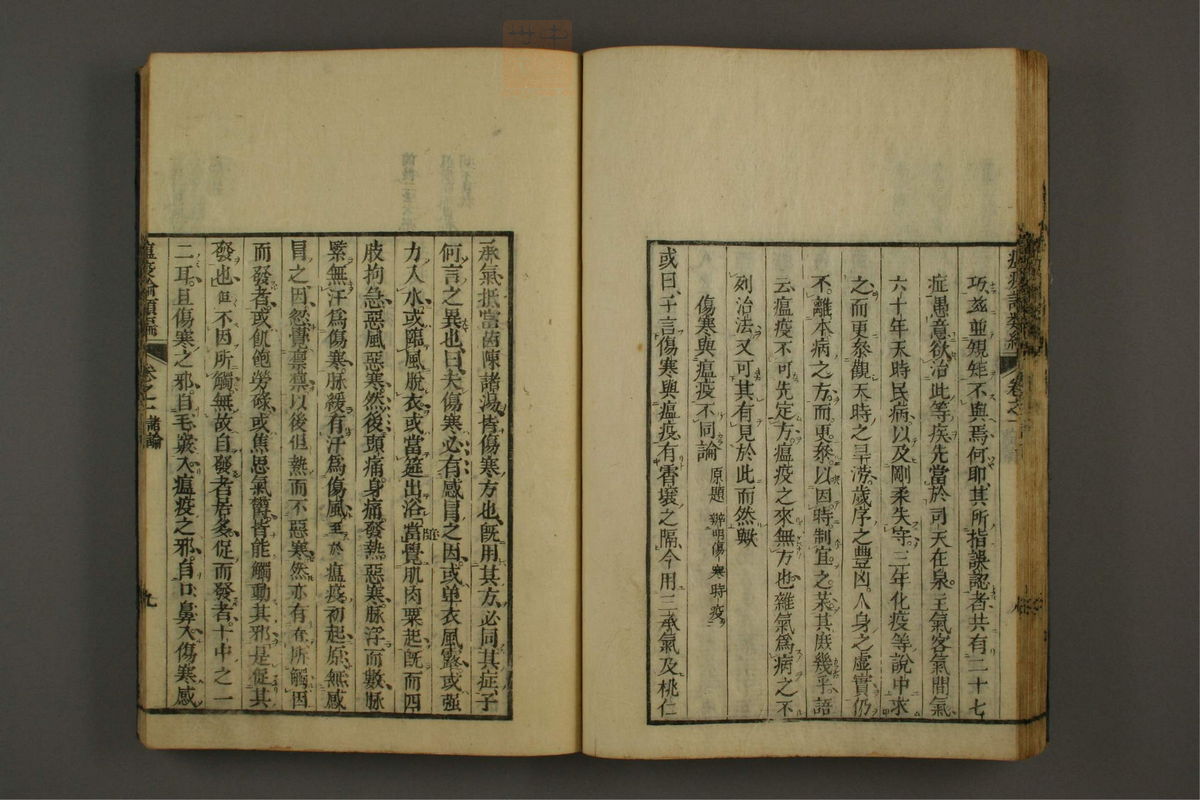 巧玆並䂓矩不與焉何耶其所指誤認者共有二十七
症愚意欲治此等疾先當於司天在泉主氣客氣間氣
六十年天時民病以及剛柔失守三年化疫等說中求
之而更叅觀天時之旱澇歲序之豐凶人身之虛實仍
不離本病之方而更叅以因時制宜之䒶其庻幾乎語
云瘟疫不可先定方瘟疫之來無方也雜氣爲病之不
列治法又可其有見於此而然歟
傷寒與瘟疫不同論 原題 辨明傷寒時疫
或曰子言傷寒與瘟疫有霄壤之隔今用三承氣及桃仁
瘟疫論類編 卷之二 諸論 九
承氣抵當茵陳諸湯皆傷寒方也旣用其方必同其症子
何言之異也曰夫傷寒必有感冒之因或单衣風露或强
力入水或臨風脫衣或當簷出浴隨當覺肌肉粟起旣而四
肢拘急惡風惡寒然後頭痛身痛發熱惡寒脉浮而數脉
緊無汗爲傷寒脉緩有汗爲傷風至於瘟疫初起原無感
冒之因忽覺凛凛以後但熱而不惡寒然亦有有所觸因
而發者或飢飽勞碌或焦思氣鬱皆能觸動其邪是促其
發也但不因所觸無故自發者居多促而發者十中之一
二耳且傷寒之邪自毛竅入瘟疫之邪自口鼻入傷寒感